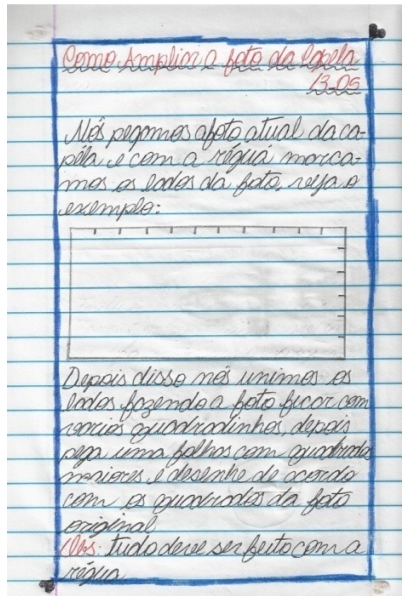 Como Ampliar a foto da Capela
13-05
Nós pegamos a foto atual da ca-
pela e com a régua marca-
mos os lados da foto, veja o
exemplo:
Depois disso nós unimos os
lados fazendo a foto ficar com
varios quadradinhos, depois
pega uma folhas com quadrados
maiores e desenhe de acordo
com os quadrados da foto
original
Obs: tudo deve ser feito com a
régua